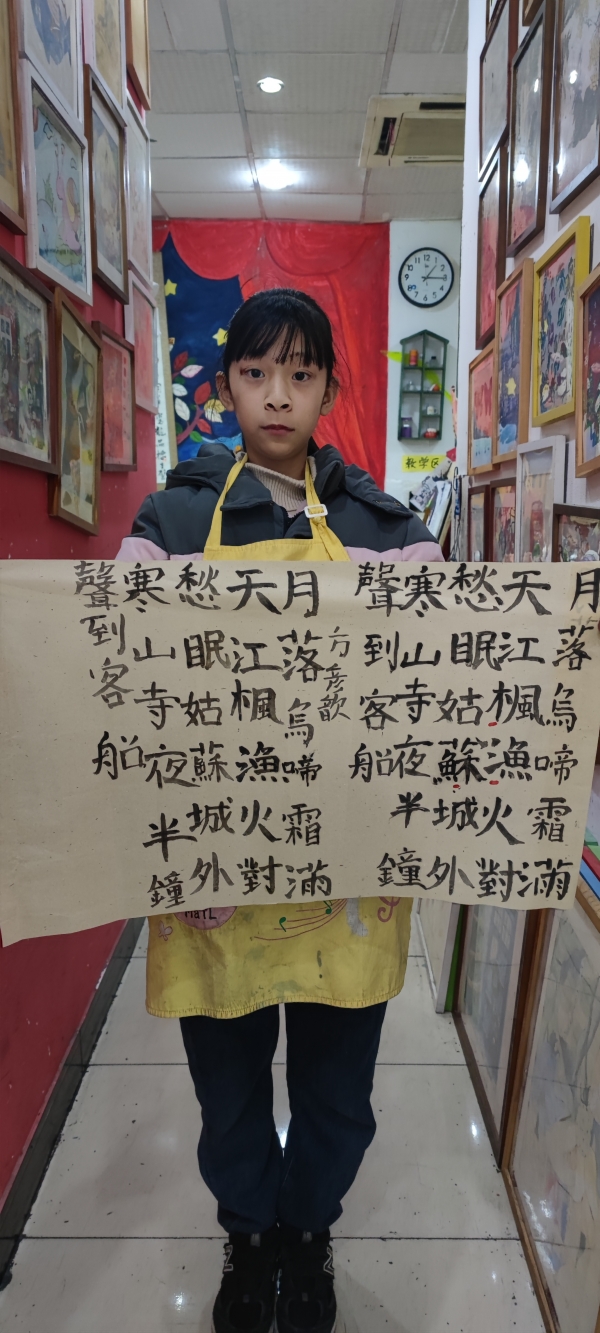 月落烏啼霜滿
天江楓漁火對
愁眠姑蘇城外
寒山寺夜半鐘
聲到客船
方彦歆
月落烏啼霜滿
天江楓漁火對
愁眠姑蘇城外
寒山寺夜半鐘
聲到客船
教学区